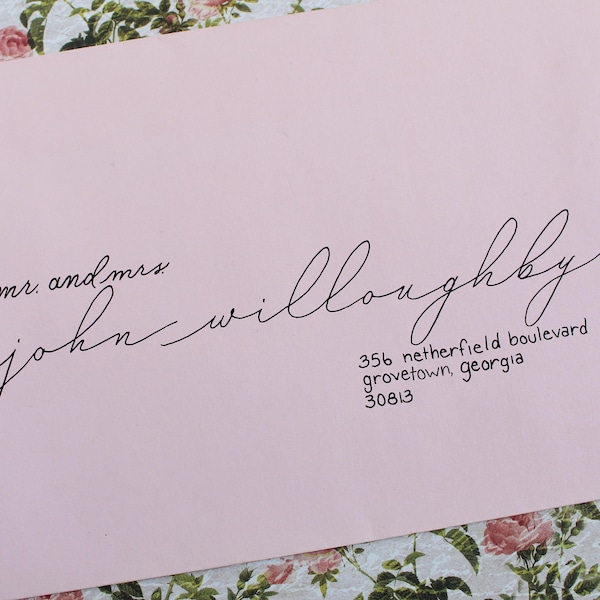 mr. and mrs.
john willoughby
356 netherfield boulevard
grovetown, georgia
30813